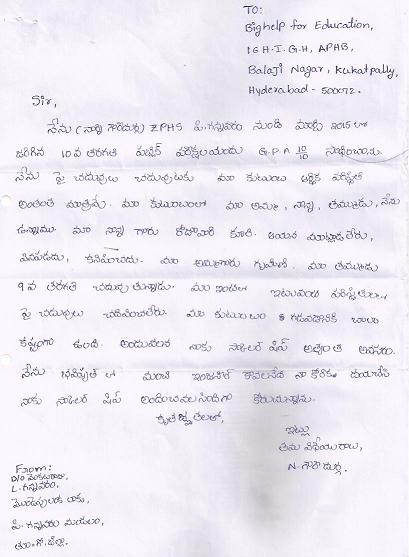 TO:
Bighelp for Education,
IGH-I.G.H, APHB,
Balaji Nagar, Kukatpally,
Hyderabad - 500072.
Sir,
నేను (నాన్ని గౌరీదుర్గ) ZPHS పి.గన్నవరం నుండి మార్చి 2015 లో
జరిగిన 10వ తరగతి పబ్లిక్ పరీక్షలయందు G.P.A 10/10 సాధించాను.
నేను పై చదువులు చదువుటకు మా కుటుంబ ఆర్థిక పరిస్థితి
అంతంత మాత్రమే. మా కుటుంబంలో మా అమ్మ, నాన్న, తమ్ముడు, నేను
ఉన్నాము. మా నాన్న గారు రోజువారి కూలి. ఆయన మాట్లాడలేరు,
వినపడదు, కనిపించదు. మా అమ్మగారు గృహిణి. మా తమ్ముడు
9వ తరగతి చదువుతున్నాడు. మా ఇంటిలో ఇటువంటి పరిస్థితులలో
పై చదువులు చదివించలేరు. మా కుటుంబం గడవడానికి చాలా
కష్టంగా ఉంది. అందువలన నాకు స్కాలర్ షిప్ అత్యంత అవసరం.
నేను భవిష్యత్ లో మంచి ఇంజనీర్ కావలనేది నా కోరిక దయచేసి
నాకు స్కాలర్ షిప్ అందించవలసిందిగా కోరుచున్నాను.
కృతజ్ఞతలతో,
ఇట్లు
తమ విధేయురాలు,
N. గౌరీ దుర్గ.
From:
D/O వెంకటరాజు,
L. గన్నవరం,
మొండెపులంక లాకు,
పి. గన్నవరం మండలం,
తూ.గో.జిల్లా.